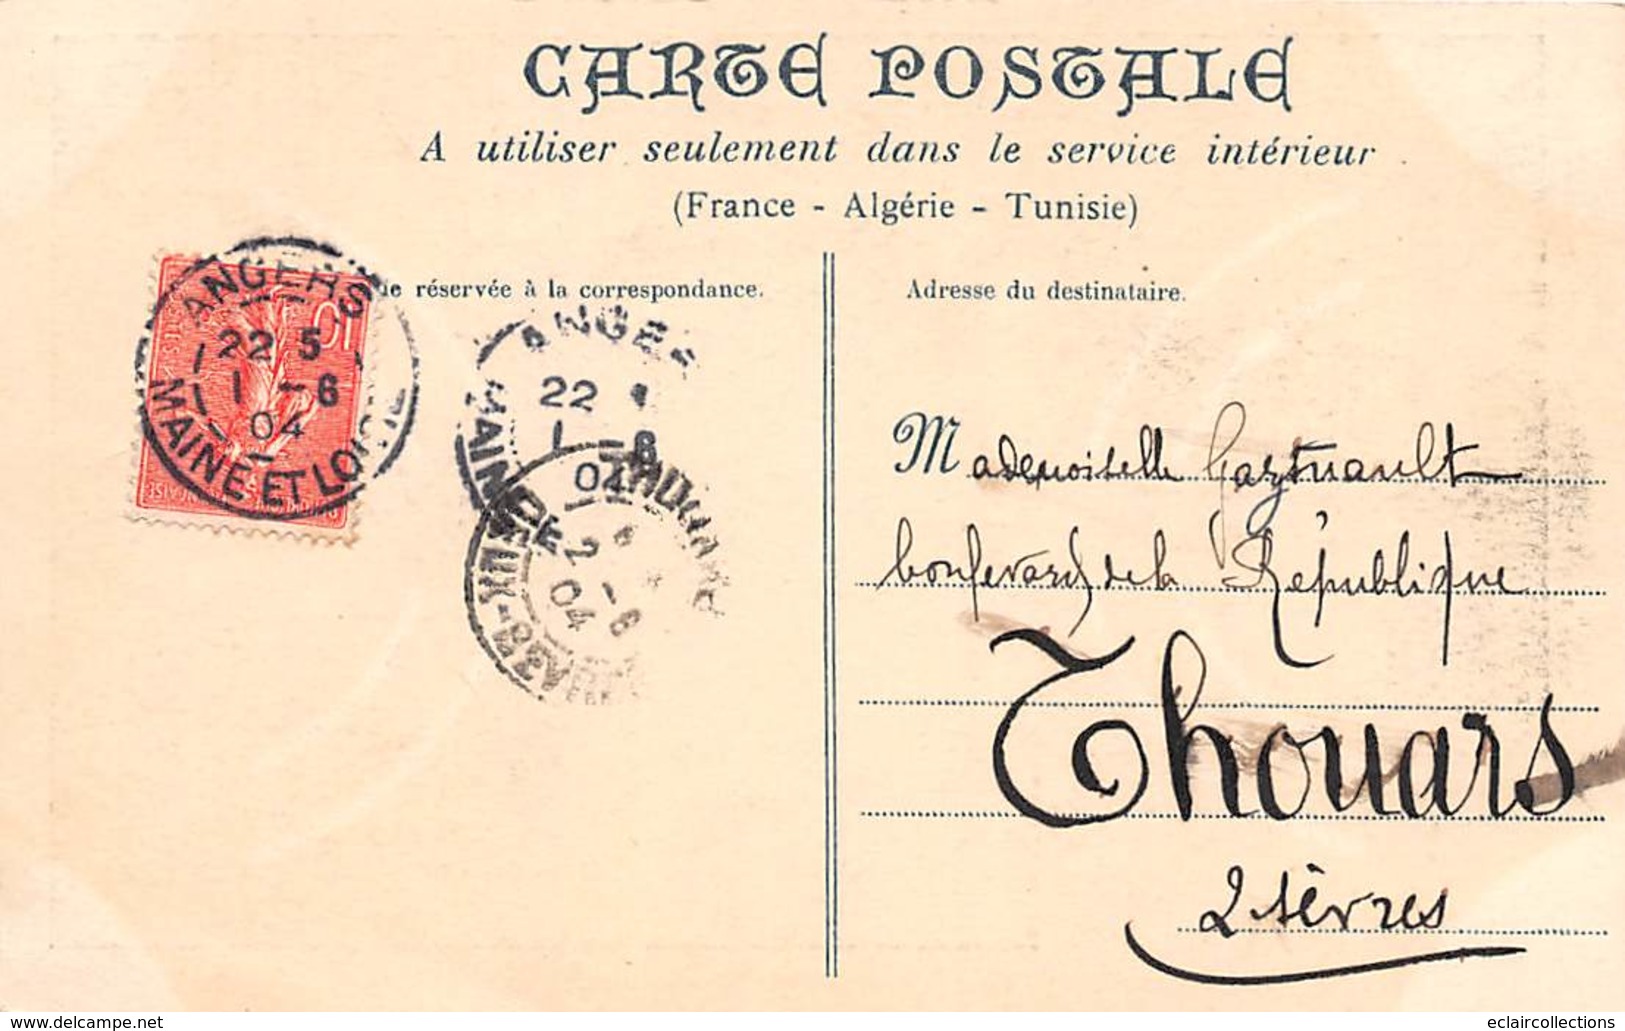 CARTE POSTALE
A utiliser seulement dans le service intérieur
(France - Algérie - Tunisie)
réservée à la correspondance.
Adresse du destinataire.
ANGERS
22 5
1 - 6
04
MAINE ET LOIRE
10
ANGE
22
1 - 6
04
MAINE
2 - 6
04
Mademoiselle
boulevard de la République
Thouars
2 Sèvres
www.delcampe.net
eclaircollections